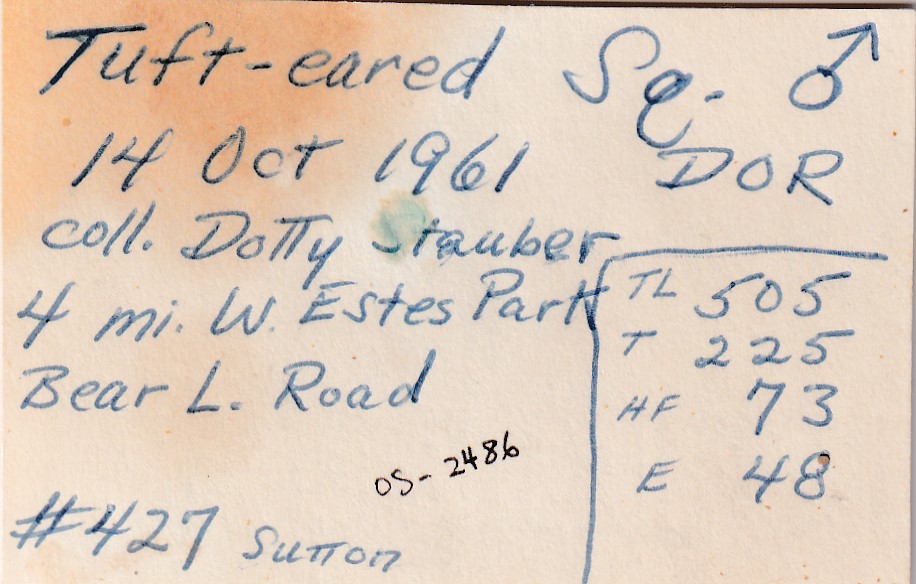 Tuft-eared Sq. ♂
14 Oct 1961 DOR
coll. Dotty Stauber
4 mi. W. Estes Park
Bear L. Road
TL 505
T 225
HF 73
E 48
OS-2486
#427 Sutton